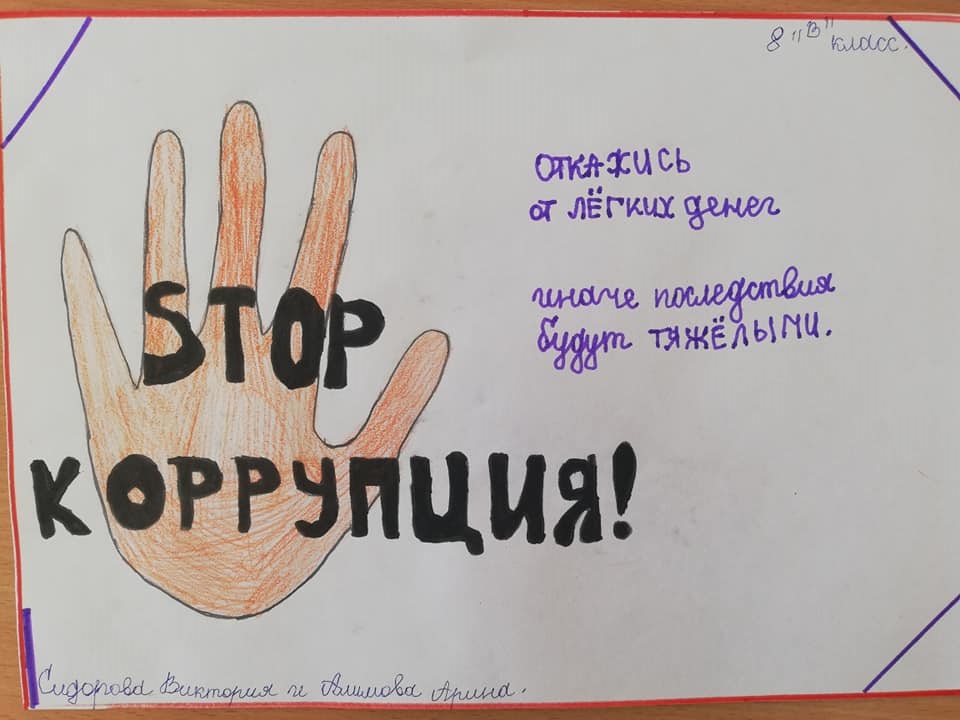 8 "В" класс.
ОТКАЖИСЬ
от ЛЁГКИХ денег
иначе последствия
будут ТЯЖЁЛЫМИ.
STOP
КОРРУПЦИЯ!
Сидорова Виктория и Алимова Арина.